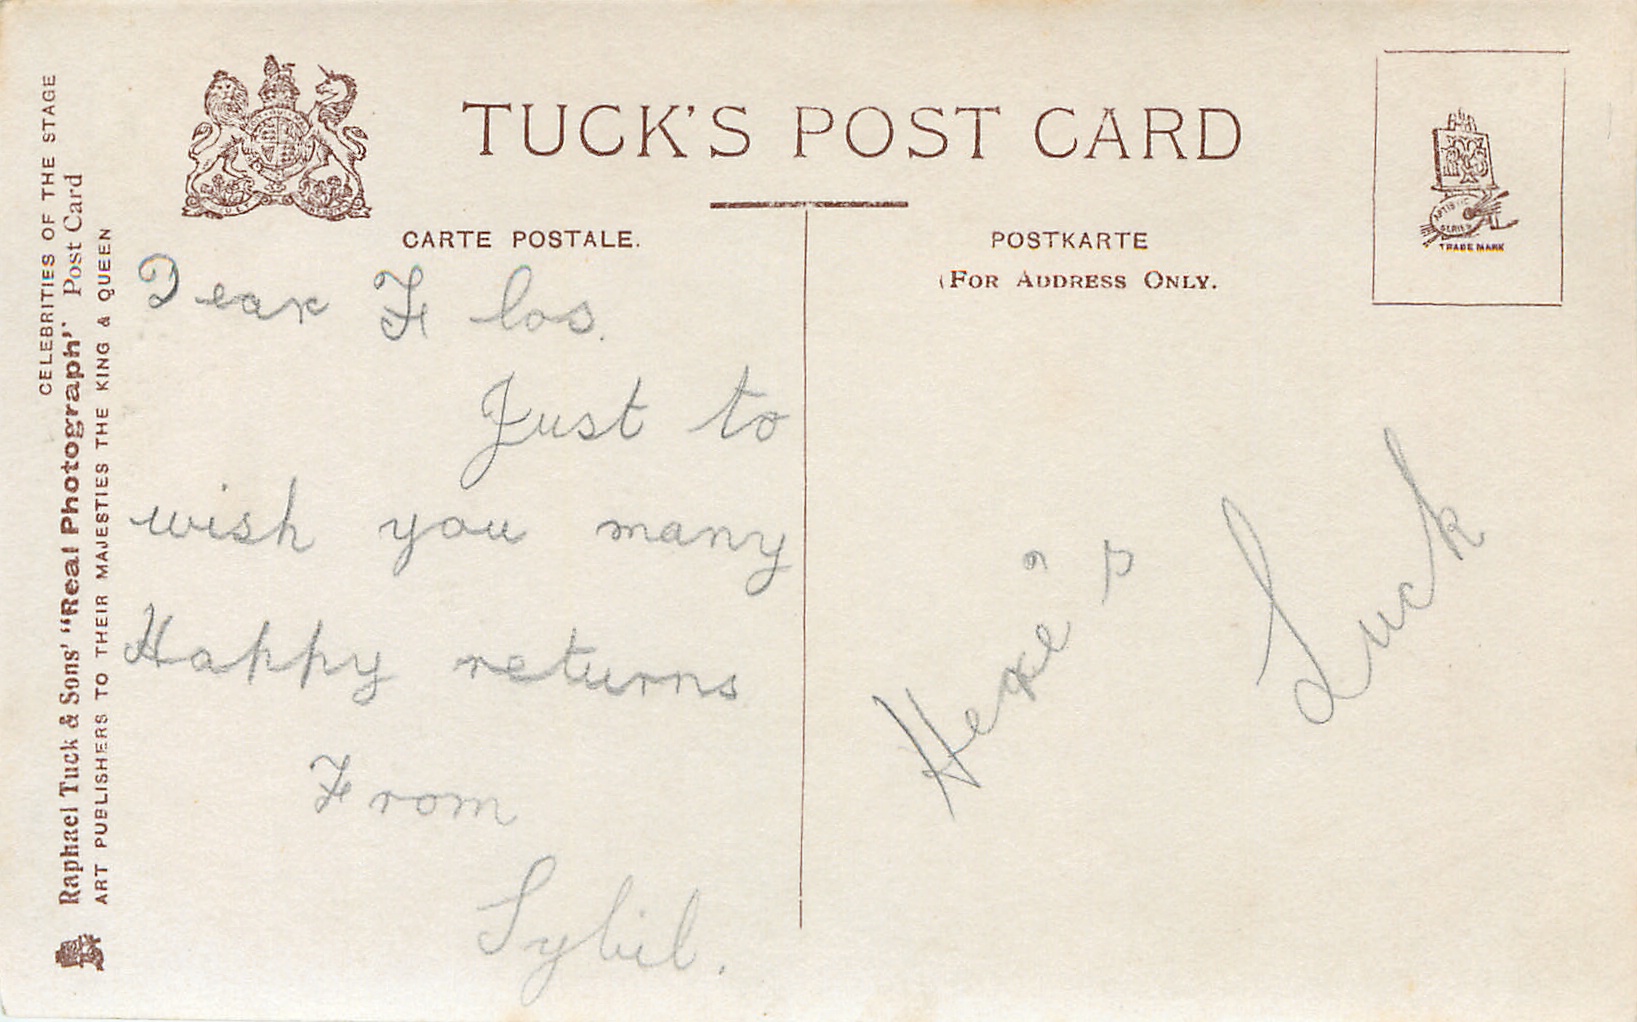 CELEBRITIES OF THE STAGE
Raphael Tuck & Sons' "Real Photograph" Post Card
ART PUBLISHERS TO THEIR MAJESTIES THE KING & QUEEN
TUCK'S POST CARD
CARTE POSTALE.
POSTKARTE
(FOR ADDRESS ONLY.
ARTISTIC
SERIES
TRADE MARK
Dear Flos.
Just to
wish you many
Happy returns
From
Sybil.
Luck